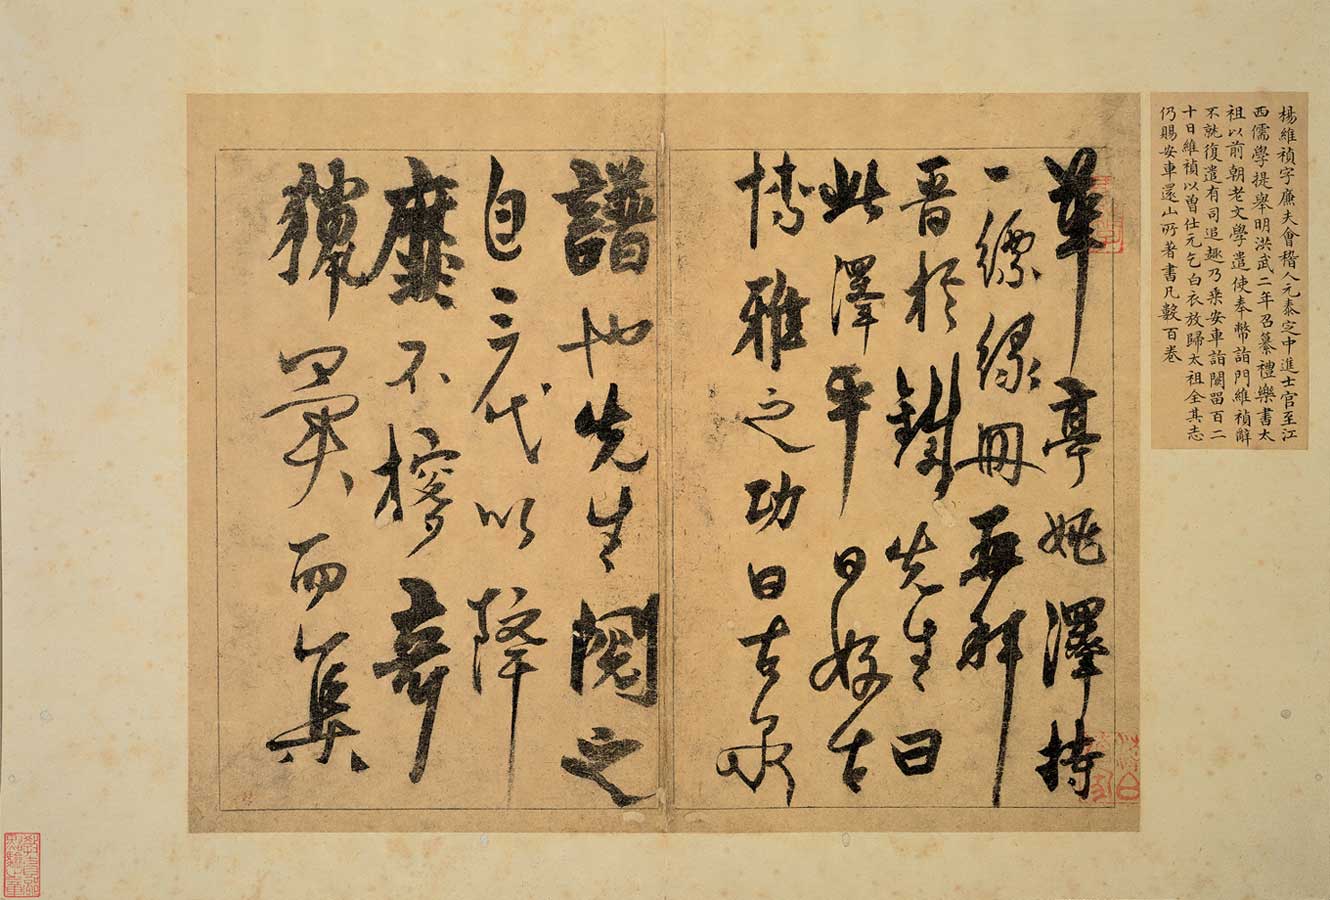 楊維禎字廉夫會稽人元泰定中進士官至江
西儒學提舉明洪武二年召纂禮樂書太
祖以前朝老文學遣使奉幣詣門維禎辭
不就復遣有司追趣乃乘安車詣闕畱百二
十日維禎以曾仕元乞白衣放歸太祖全其志
仍賜安車還山所著書凡數百卷
華亭姚澤持
一縹緣冊再拜
晉於鐵先生曰
此澤平日好古
博雅之功曰古泉
譜也先生閱之
自三代以降
靡不搜奇
獵異而集